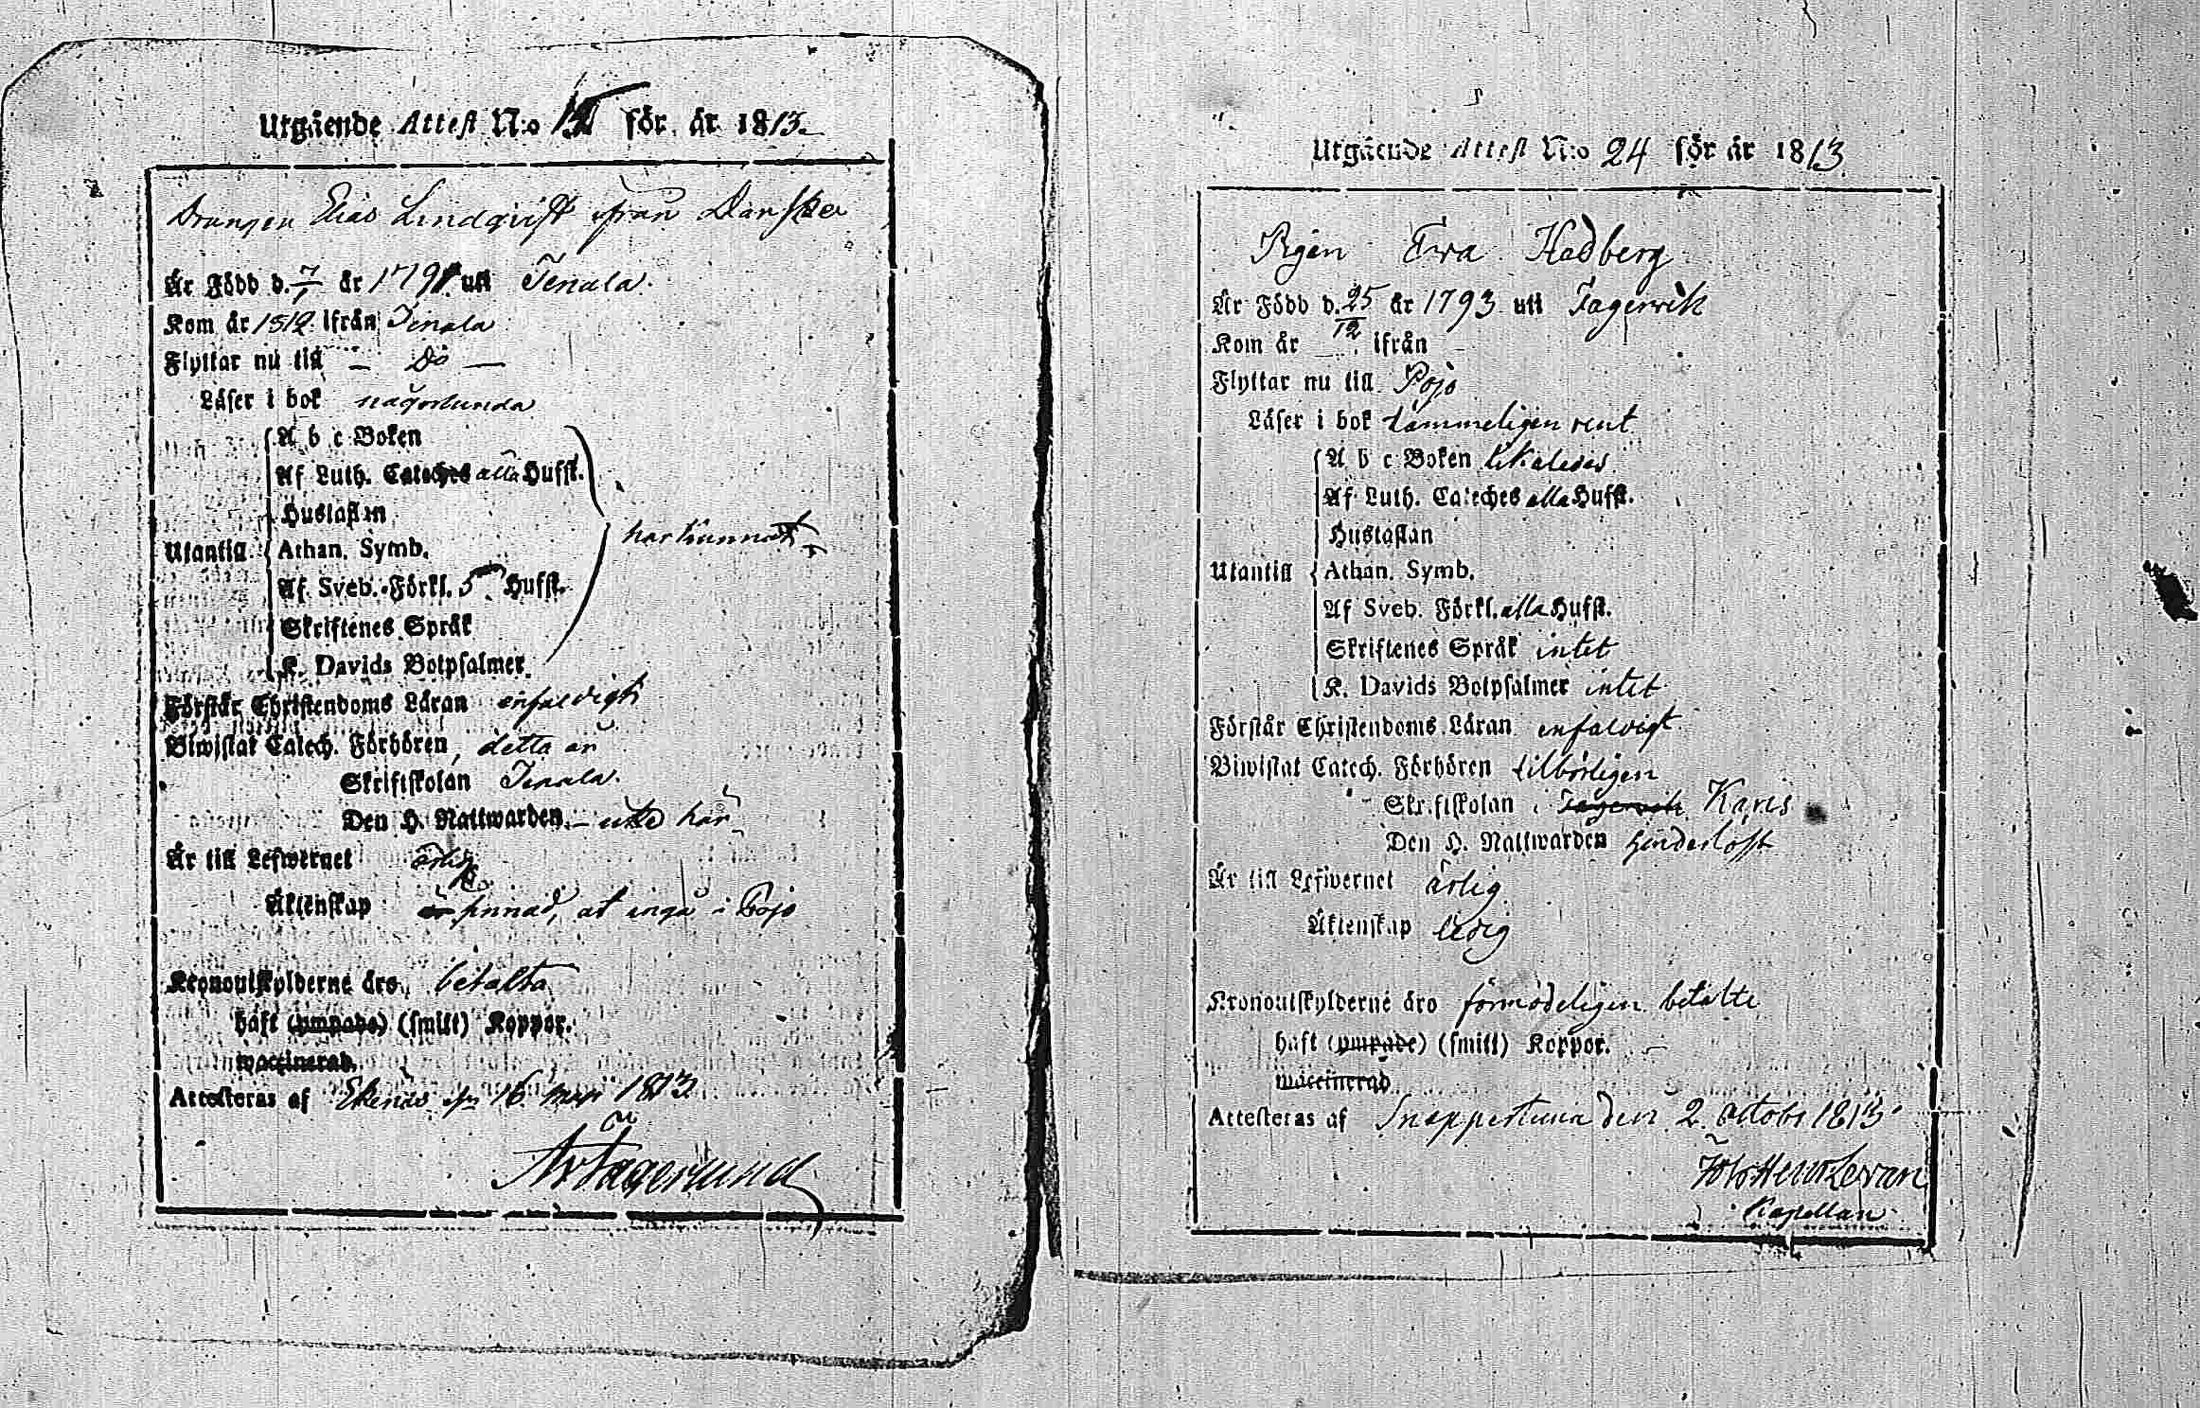 Utgående Attest N:o 15 för år 1813.
Drängen Elias Lindqvist ifrån Dansker
Är Född d. 7/1 år 1791 uti Tenala.
Kom år 1812 ifrån Tenala
Flyttar nu till — Dö —
Läser i bok någorlunda
A b c Boken
Af Luth. Cateches alla Hufst.
Hustaflan
Utantill Athan. Symb. har kunnat
Af Sveb. Förkl. 5 Hufst.
Skriftenes Språk
K. Davids Botpsalmer
Förstår Christendoms Läran enfaldigt
Biwistat Catech. Förhören, detta år
Skriftskolan Tenala.
Den H. Nattwarden — här
Är till Lefwernet ärlig
Äktenskap at ingå i Pojo
Kronoutskylderne äro betalta
haft (ympade) (smitt) Koppor.
waccinerad.
Attesteras af Ekenäs 16 1813
Fagerlund
Utgående Attest N:o 24 för år 1813
Pigan Ewa Hedberg
Är Född d. 25/12 år 1793 uti Fagerwik
Kom år — ifrån —
Flyttar nu till Pojo
Läser i bok tämmeligen rent
A b c Boken likaledes
Af Luth. Cateches alla Hufst.
Hustaflan
Utantill Athan. Symb.
Af Sveb. Förkl. alla Hufst.
Skriftenes Språk intet
K. Davids Botpsalmer intet
Förstår Christendoms Läran enfaldigt
Biwistat Catech. Förhören tilbörligen
Skriftskolan i Fagerwik Karis
Den H. Nattwarden hinderlöst
Är till Lefwernet ärlig
Äktenskap ledig
Kronoutskylderne äro förmodeligen betalte
haft (ympade) (smitt) Koppor.
waccinerad
Attesteras af Snappertuna den 2 octobr 1813
Kapellan